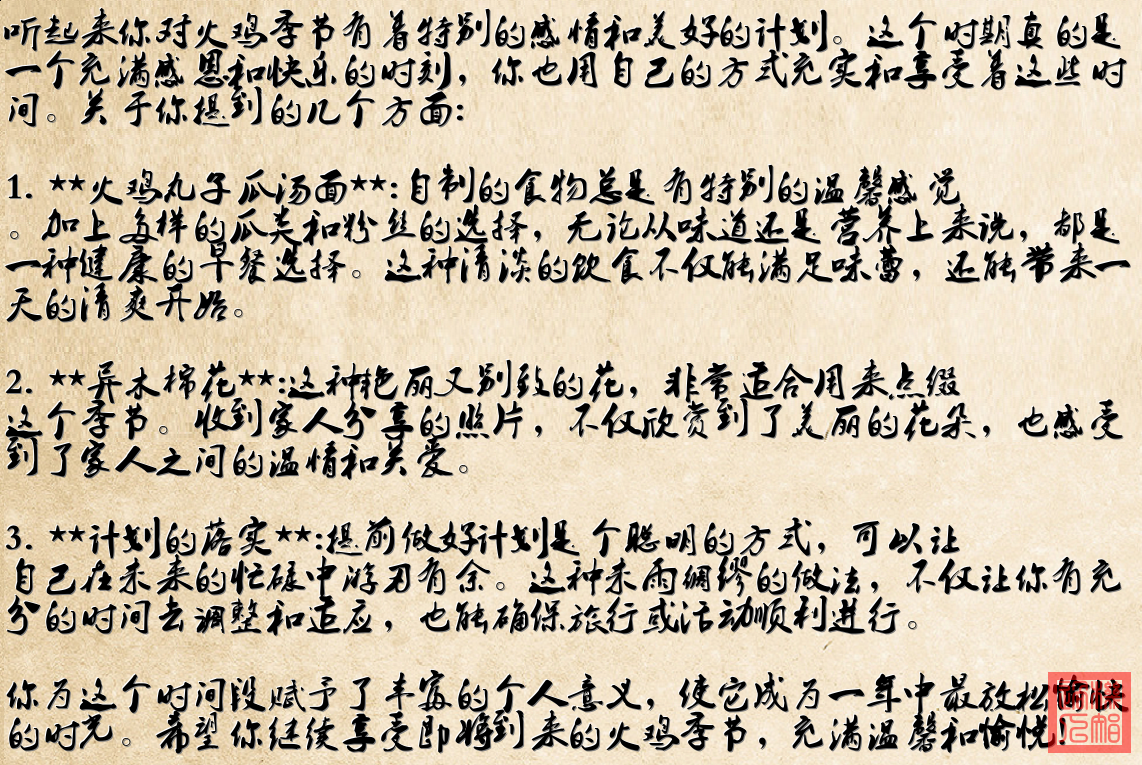 听起来你对火鸡季节有着特别的感情和美好的计划。这个时期真的是
一个充满感恩和快乐的时刻，你也用自己的方式充实和享受着这些时
间。关于你提到的几个方面：
1. **火鸡丸子瓜汤面**:自制的食物总是有特别的温馨感觉
。加上多样的瓜类和粉丝的选择，无论从味道还是营养上来说，都是
一种健康的早餐选择。这种清淡的饮食不仅能满足味蕾，还能带来一
天的清爽开始。
2. **异木棉花**:这种艳丽又别致的花，非常适合用来点缀
这个季节。收到家人分享的照片，不仅欣赏到了美丽的花朵，也感受
到了家人之间的温情和关爱。
3. **计划的落实**:提前做好计划是个聪明的方式，可以让
自己在未来的忙碌中游刃有余。这种未雨绸缪的做法，不仅让你有充
分的时间去调整和适应，也能确保旅行或活动顺利进行。
你为这个时间段赋予了丰富的个人意义，使它成为一年中最放松愉快
的时光。希望你继续享受即将到来的火鸡季节，充满温馨和愉悦！